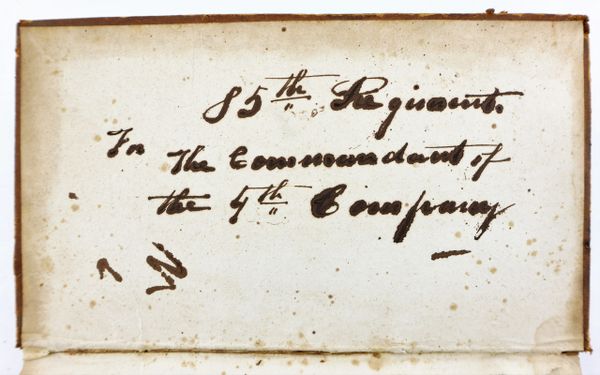 85th Regiment.
For the Commandant of
the 4th Company